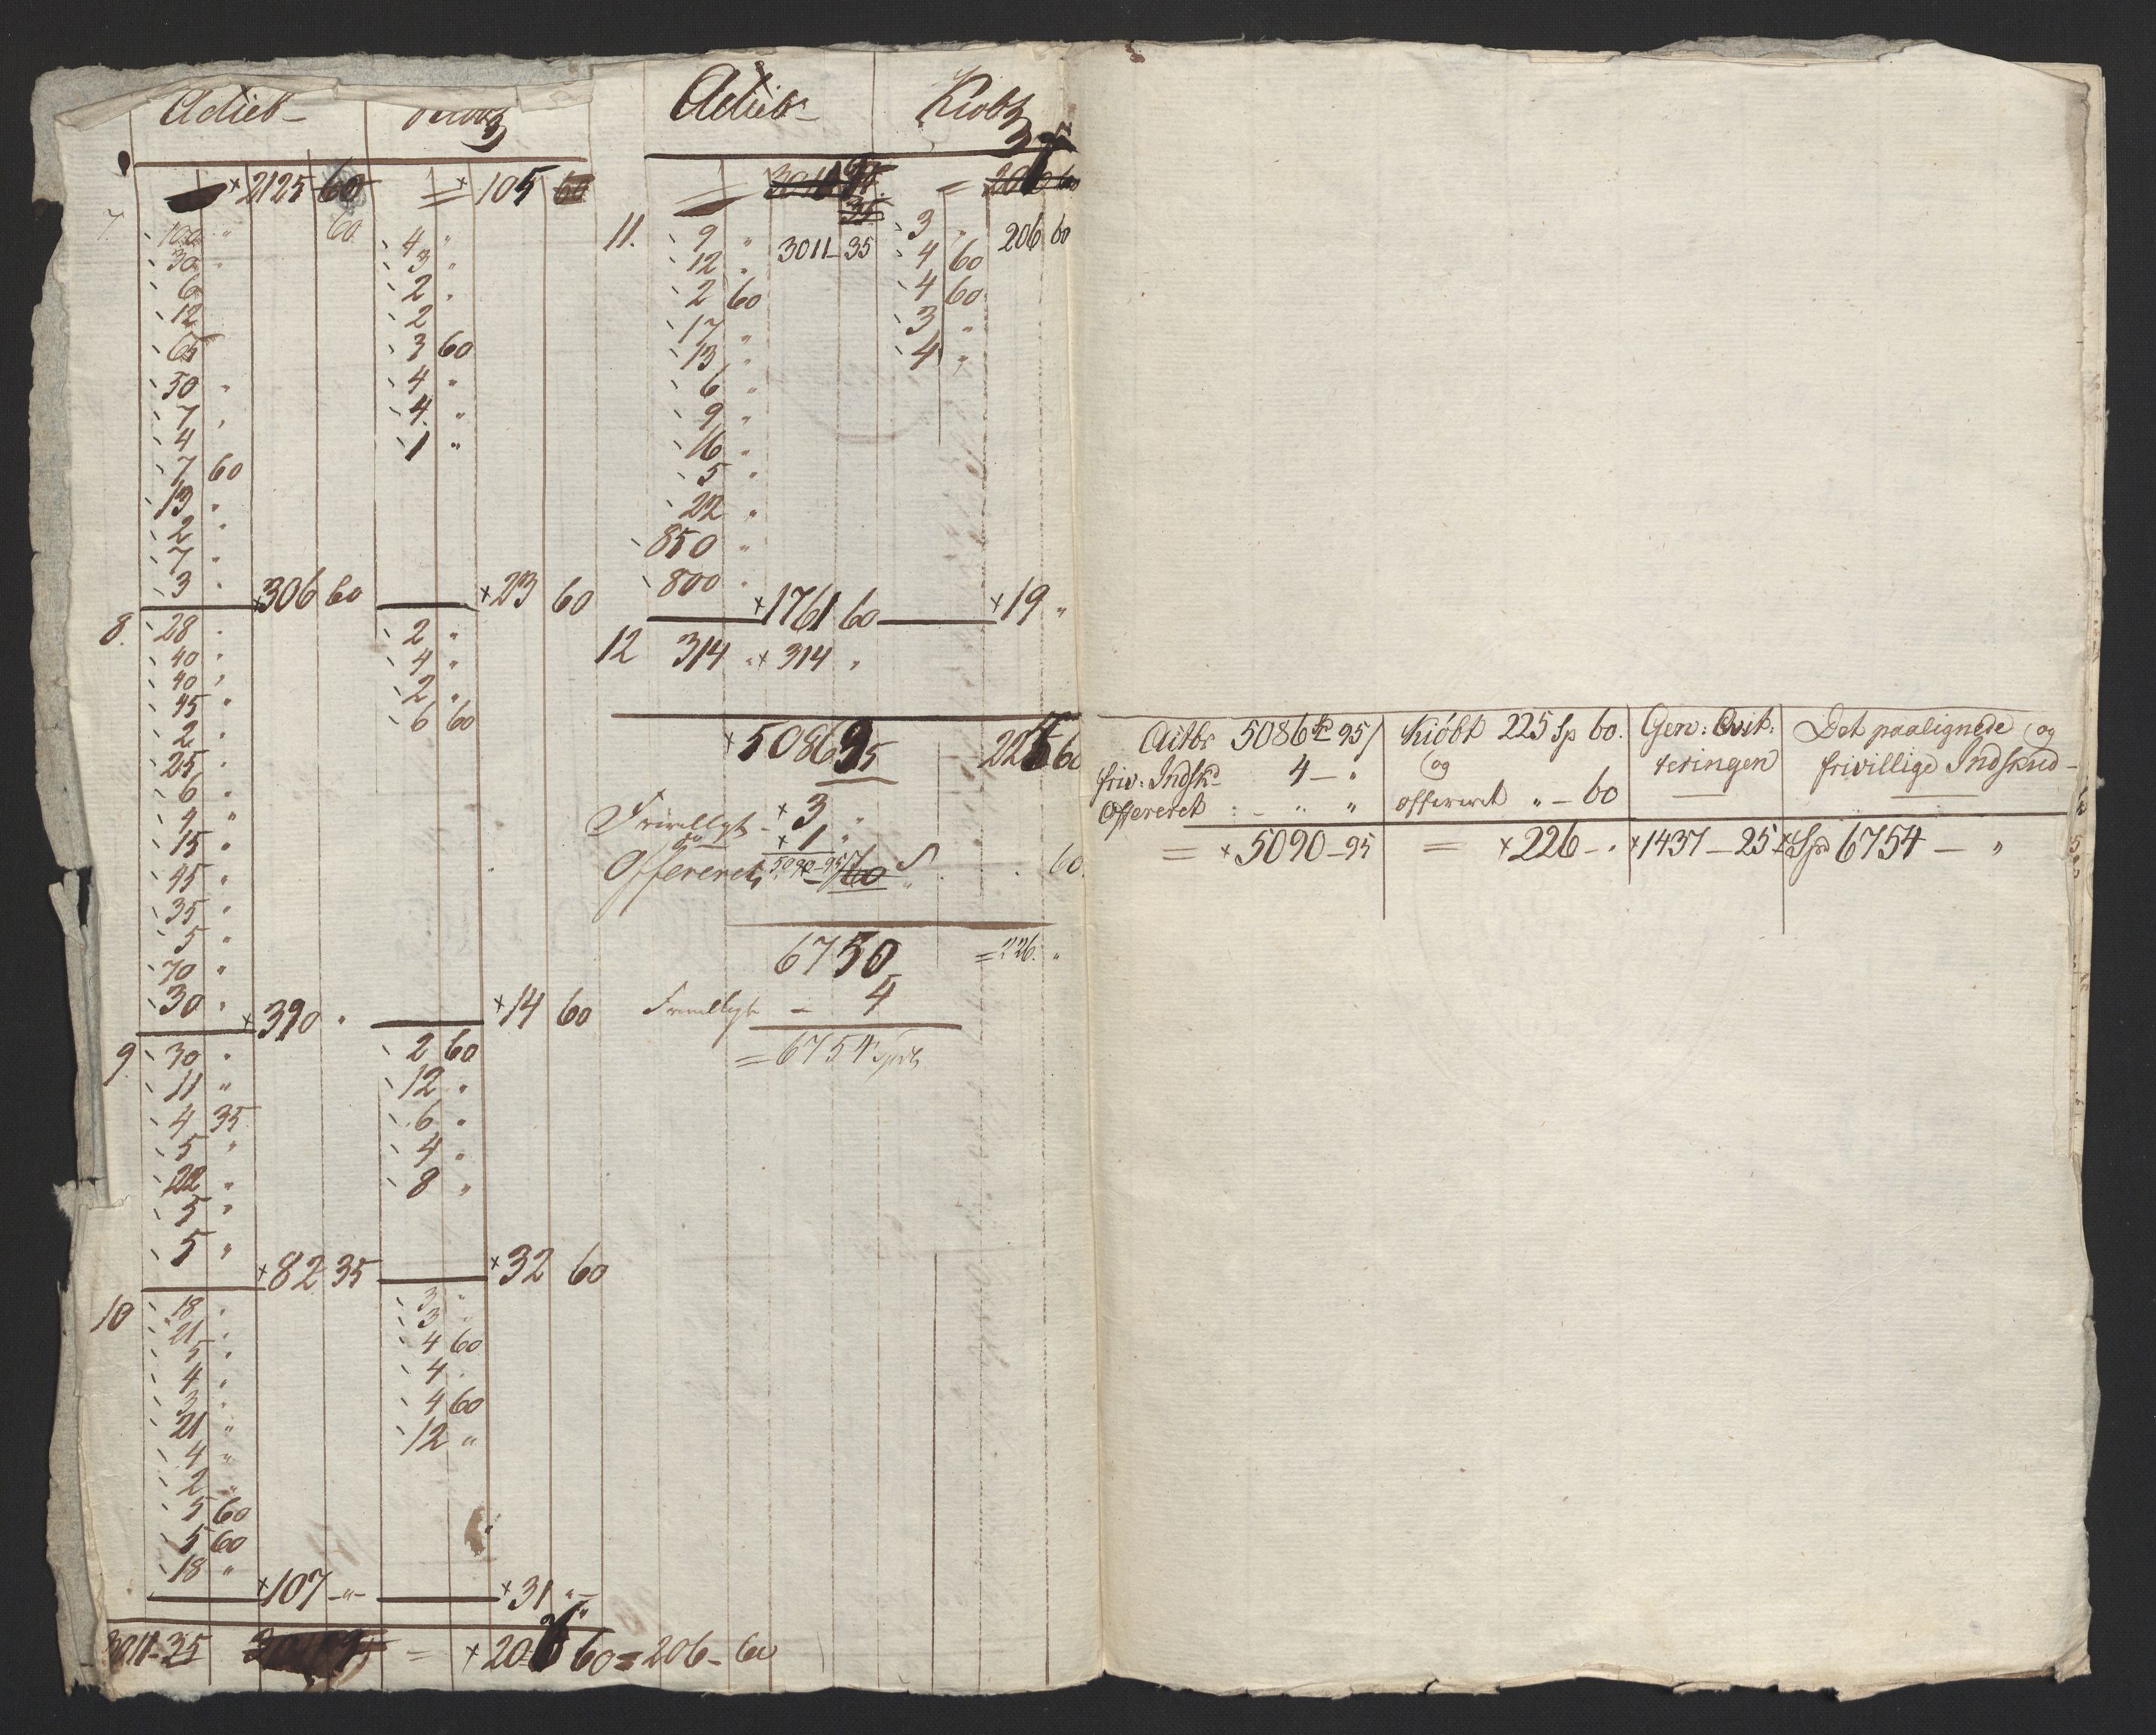 Actieb Kiobt
2125 60 = 105 60
60
7. 100 " 4 "
30 " 3 "
6 2 "
12 2
65 3 60
50 " 4 "
7 " 4 "
4 1 "
7 60
13 "
2 "
7 "
3 " 306 60 23 60
8. 28 " 2 "
40 " 4 "
40 " 2 "
45 " 6 60
2 "
25 "
6 "
4 "
15 "
45 "
35 "
5 "
70 "
30 " 390 " 14 60
9. 30 " 2 60
11 " 12 "
4 35 6 "
5 " 4 "
22 " 8 "
5 "
5 "
82 35 32 60
10 18 " 3 "
21 " 3 "
5 " 4 60
4 " 4 "
3 " 4 60
21 " 12 "
4 "
2 "
5 60
5 60
18 " 107 - " - 31 " -
3011-35 = 206 60 = 206 - 60
Actieb Kiobt
= 206 60
35
11. 9 " 3011-35 3 " 206 60
12 " 4 60
2 60 4 60
17 " 3 "
13 " 4 "
6 "
9 "
16 "
5 "
22 "
850 "
800 "
1761 60 19 "
12 314 " 314 "
5086 95 - 225 60
Frivilligt - 3 "
do 1 "
Offereret 5090-95 60 60
6750 = 226. "
Frivilligt - 4
= 6754 Spd
Actbr 5086 95 Kióbt 225 Sp 60. Gen: Qvit: Det paalignede og
friv: Indsk 4 - " og teringen frivillige Indskud -
Offereret : - " " offereret " - 60
= 5090-95 = 226 - . 1437 - 25 Spd 6754 - "